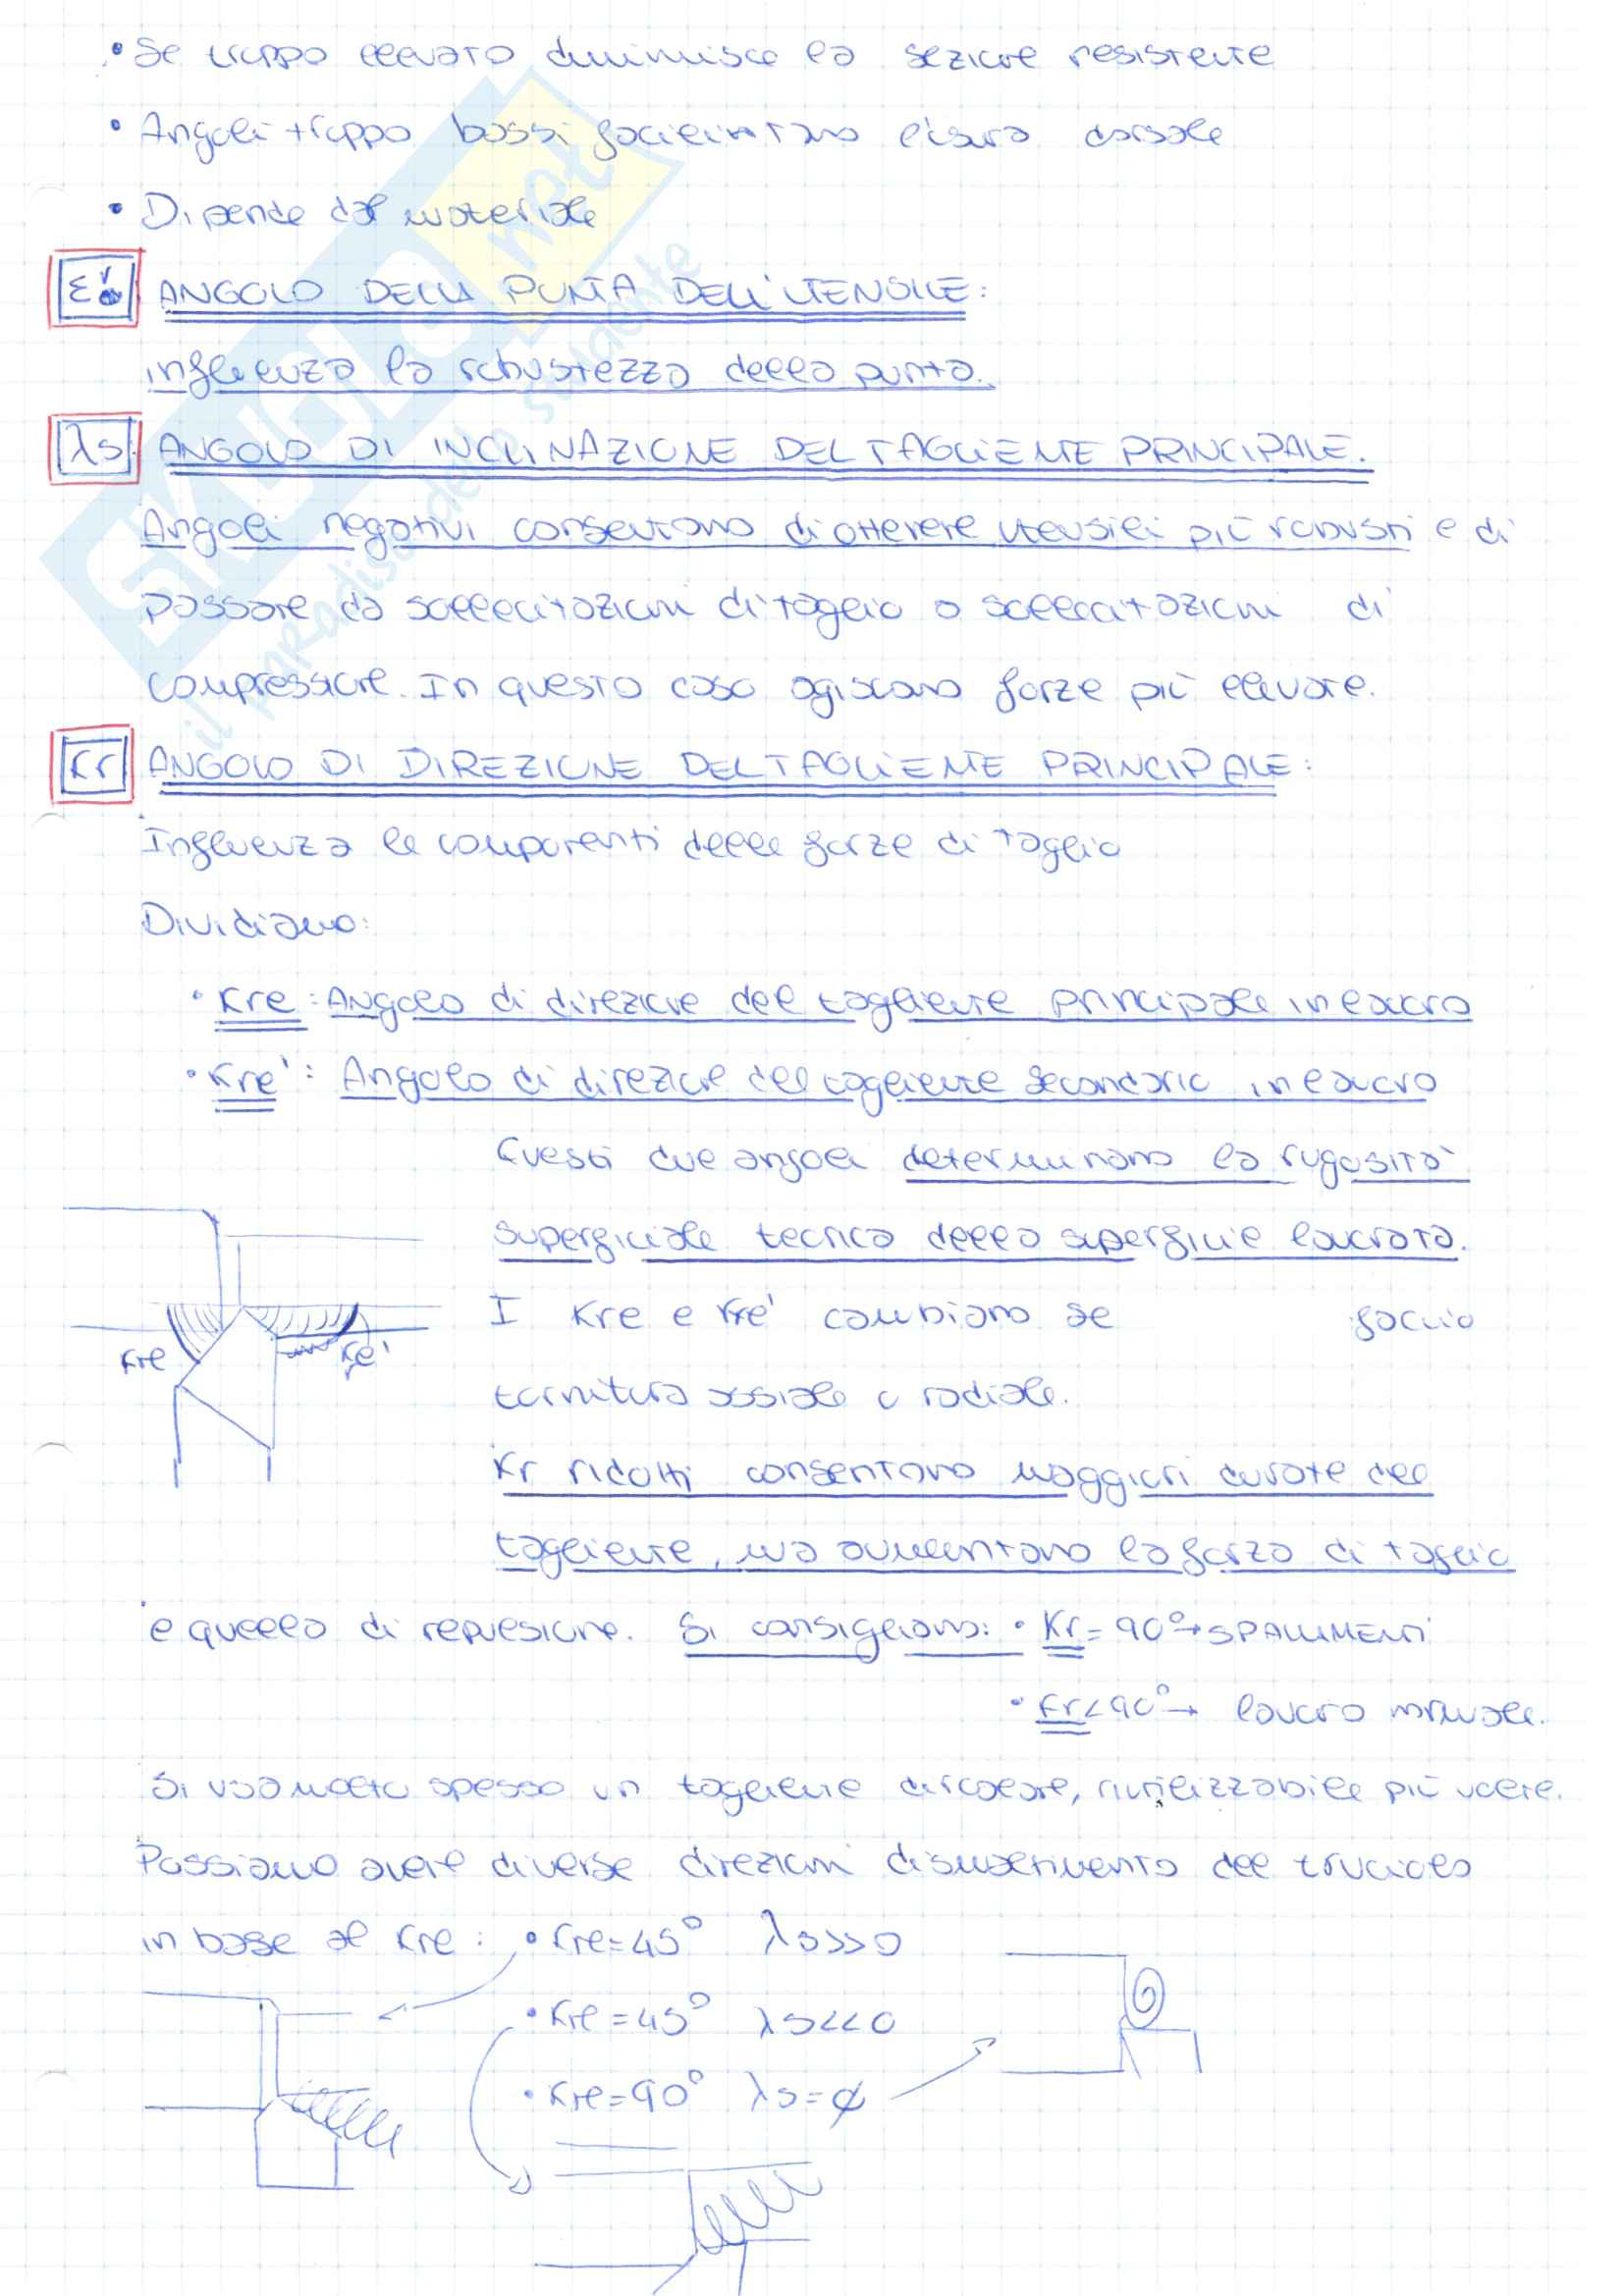 • Se troppo elevato diminuisce la sezione resistente
• Angoli troppo bassi facilitano l'usura dorsale
• Dipende dal materiale
εr ANGOLO DELLA PUNTA DELL'UTENSILE:
influenza la robustezza della punta.
λs ANGOLO DI INCLINAZIONE DEL TAGLIENTE PRINCIPALE.
Angoli negativi consentono di ottenere utensili più robusti e di
passare da sollecitazioni di taglio a sollecitazioni di
compressione. In questo caso agiscono forze più elevate.
Kr ANGOLO DI DIREZIONE DEL TAGLIENTE PRINCIPALE:
Influenza le componenti delle forze di taglio
Dividiamo:
• Kre: Angolo di direzione del tagliente principale in lavoro
• Kre': Angolo di direzione del tagliente secondario in lavoro
Questi due angoli determinano la rugosità
superficiale tecnica della superficie lavorata.
I Kre e Kre' cambiano se faccio
Kre Kre'
tornitura assiale o radiale.
Kr ridotti consentono maggiori durate del
tagliente, ma aumentano la forza di taglio
e quella di repulsione. Si consigliano: • Kr = 90° → SPALLAMENTI
• Kr < 90° → lavoro normale.
Si usa molto spesso un tagliente circolare, riutilizzabile più volte.
Possiamo avere diverse direzioni di smaltimento del truciolo
in base al Kre: • Kre = 45° λs >> 0
• Kre = 45° λs << 0
• Kre = 90° λs = ∅
SKUOLA.net
il paradiso dello studente